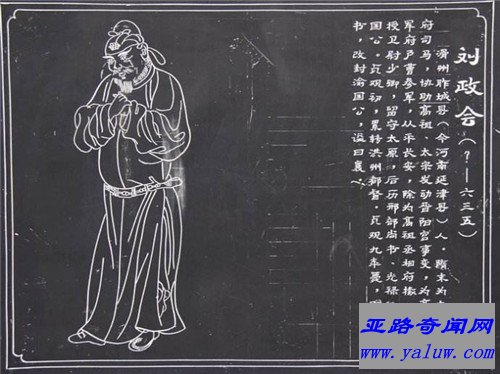 刘政会(？—六三五)
滑州胙城县(今河南延津县)人。隋末为
府司马，协助高祖、太宗发动晋阳宫事变，为
军府户曹参军，从平长安，除为高祖丞相府掾
授卫尉少卿，留守太原，后历刑部尚书、光禄
国公。贞观初，累转洪州都督。贞观九年薨，
书，改封渝国公，谥曰襄。
亚路奇闻网
www.yaluw.com